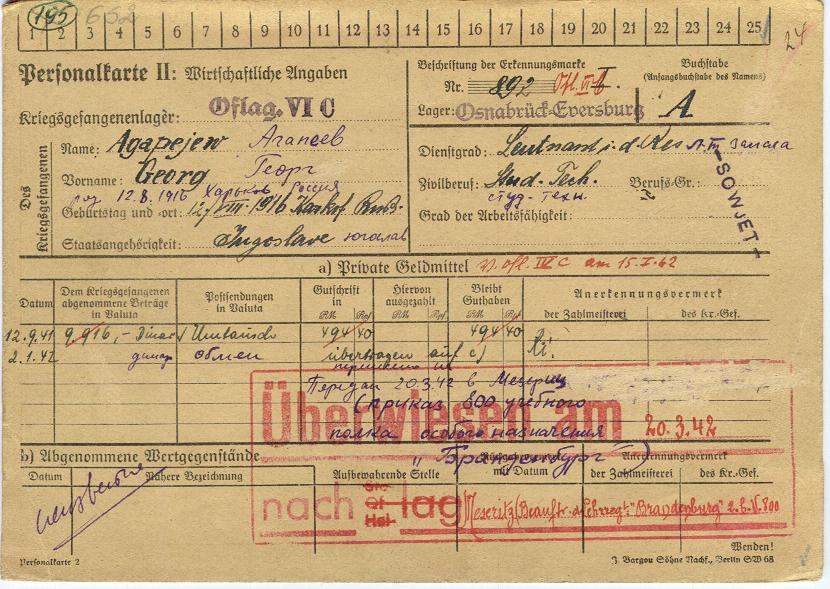 195 652
1 2 3 4 5 6 7 8 9 10 11 12 13 14 15 16 17 18 19 20 21 22 23 24 25
24
Personalkarte II: Wirtschaftliche Angaben
Beschriftung der Erkennungsmarke
Nr. 892 Ofl. VI
Buchstabe
(Anfangsbuchstabe des Namens)
Kriegsgefangenenlager: Oflag. VI C
Lager: Osnabrück-Eversburg A
Des Kriegsgefangenen
Name: Agapejew Агапеев
Vorname: Georg Георг
12.8.1916 Харьков Россия
Geburtstag und -ort: 12/VIII-1916 Karkof Ruß.
Staatsangehörigkeit: Jugoslave югослав
Dienstgrad: Leutnant i. d. Res л-т запаса
Zivilberuf: Stud. Tech. Berufs-Gr.:
студ. техн.
Grad der Arbeitsfähigkeit:
-SOWJET-
a) Private Geldmittel v. Ofl. IV C am 15.I.42
Datum
Dem Kriegsgefangenen abgenommene Beträge in Valuta
Postsendungen in Valuta
Gutschrift in
RM Rpf
Hiervon ausgezahlt
RM Rpf
Bleibt Guthaben
RM Rpf
Anerkennungsvermerk
der Zahlmeisterei des Kr.-Gef.
12.9.41 9.916,- Dinar Umtausch 494 40 494 40
2.1.42 динар обмен übertragen auf c)
Передан 20.3.42 в Мезериц
(приказ 800 учебного
полка особого назначения
"Бранденбург")
Überwiesen am 20.3.42
b) Abgenommene Wertgegenstände
Datum
Nähere Bezeichnung
Aufbewahrende Stelle
mit Datum
Anerkennungsvermerk
der Zahlmeisterei des Kr.-Gef.
nach Of lag Meseritz (Beauftr. d. Lehrregt. "Brandenburg" z. b. V. 800
Wenden!
Personalkarte 2
J. Bargou Söhne Nachf., Berlin SW 68